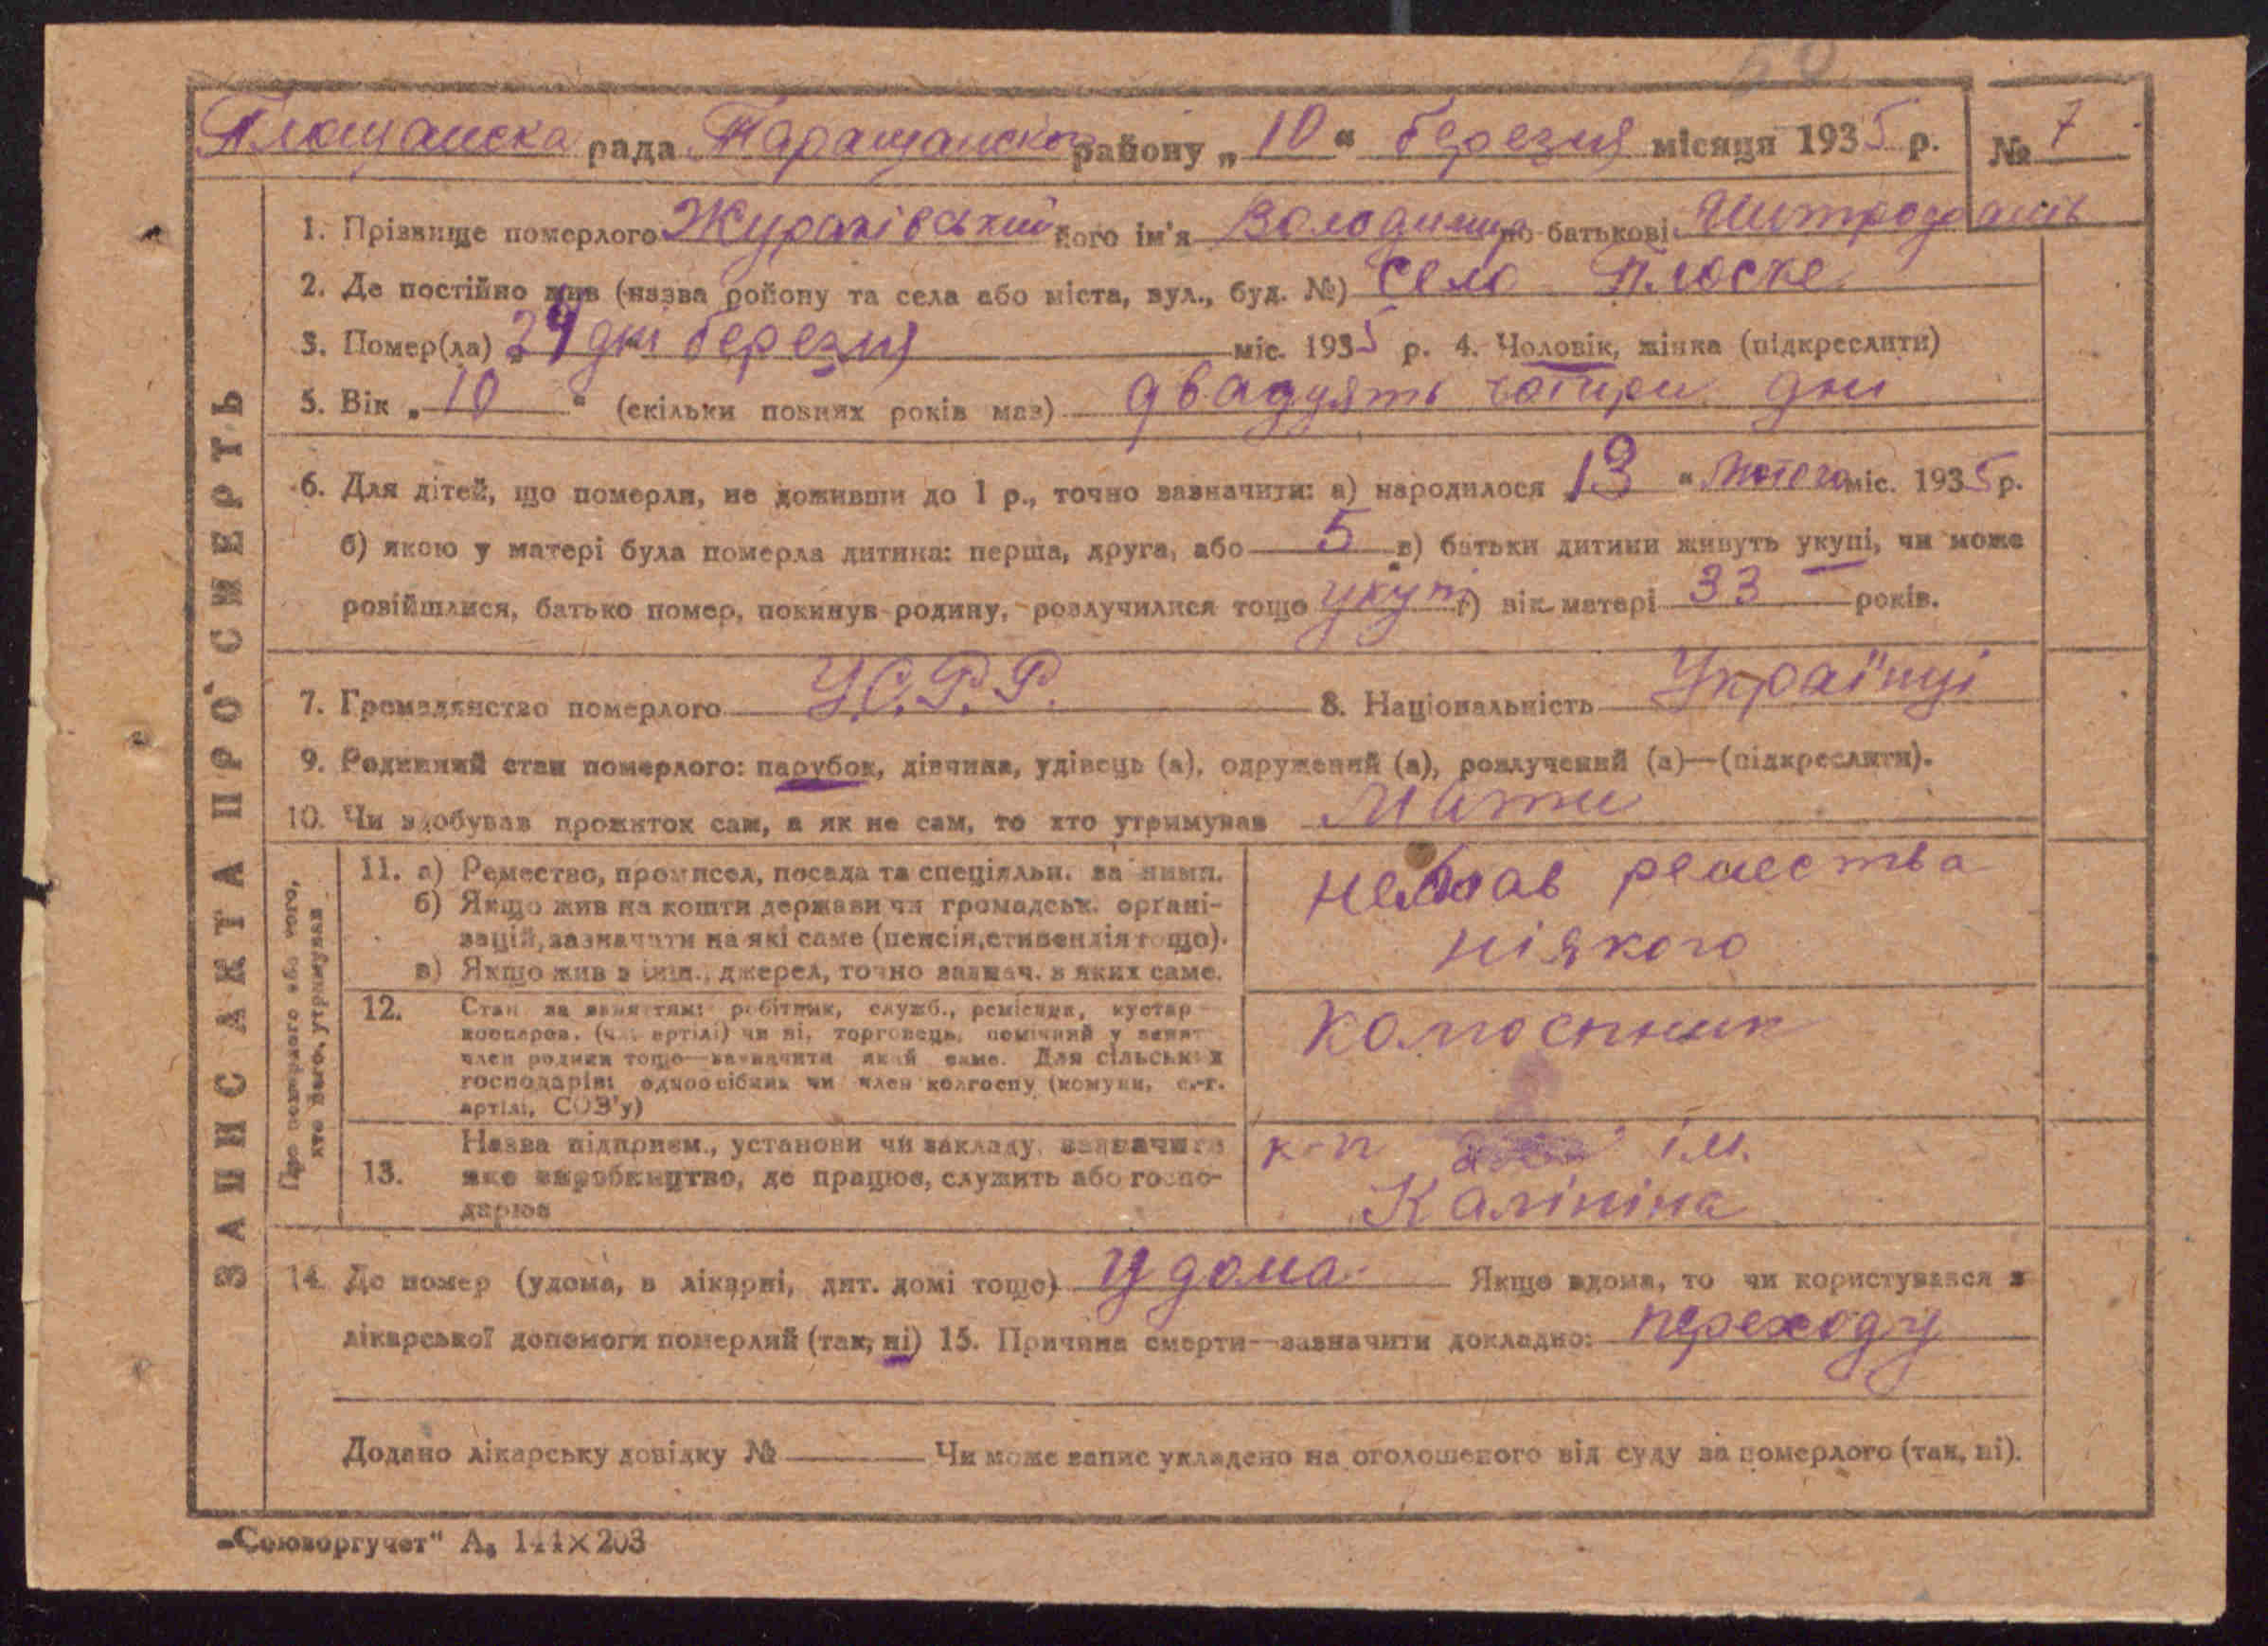 50
Плющанска рада Таращанского району „ 10 “ березня місяця 1935 р. № 7
ЗАПИС АКТА ПРО СМЕРТЬ
1. Прізвище померлого Жураківський його ім'я Володимир по батькові Митрофанів
2. Де постійно жив (назва району та села або міста, вул., буд. №) село Плюске
3. Помер(ла) „ 24 дні березня міс. 1935 р. 4. Чоловік, жінка (підкреслити)
5. Вік „ 10 “ (скільки повних років мав) двадцять чотири дні
6. Для дітей, що померли, не доживши до 1 р., точно зазначити: а) народилося „ 13 “ Лютого міс. 1935 р.
б) якою у матері була померла дитина: перша, друга, або 5 в) батьки дитини живуть укупі, чи може
розійшлися, батько помер, покинув родину, розлучилися тощо укупі г) вік матері 33 років.
7. Громадянство померлого У.С.Р.Р. 8. Національність Українці
9. Родинний стан померлого: парубок, дівчина, удівець (а), одружений (а), розлучений (а)—(підкреслити).
10. Чи здобував прожиток сам, а як не сам, то хто утримував Мати
Про померлого або того,
хто його утримував
11. а) Ремество, промисел, посада та спеціяльн. за ними.
б) Якщо жив на кошти держави чи громадськ. органі-
зацій, зазначити на які саме (пенсія, стипендія тощо).
в) Якщо жив з інш., джерел, точно зазнач. з яких саме.
немав ремества
ніякого
12. Стан за заняттям: робітник, служб., ремісник, кустар
кооперов. (чл. артілі) чи ні, торговець, помічний у занят
член родини тощо—зазначити який саме. Для сільських
господарів: одноосібник чи член колгоспу (комуни, с.-г.
артілі, СОЗ'у)
колгоспник
13. Назва підприєм., установи чи закладу, зазначити
яке виробництво, де працює, служить або госпо-
дарює
к-п ім.
Калініна
14. Де помер (удома, в лікарні, дит. домі тощо) Удома Якщо вдома, то чи користувався з
лікарської допомоги померлий (так, ні) 15. Причина смерти—зазначити докладно: переходу
Додано лікарську довідку № Чи може запис укладено на оголошеного від суду за померлого (так, ні).
„Союзоргучет“ А₅ 144×203